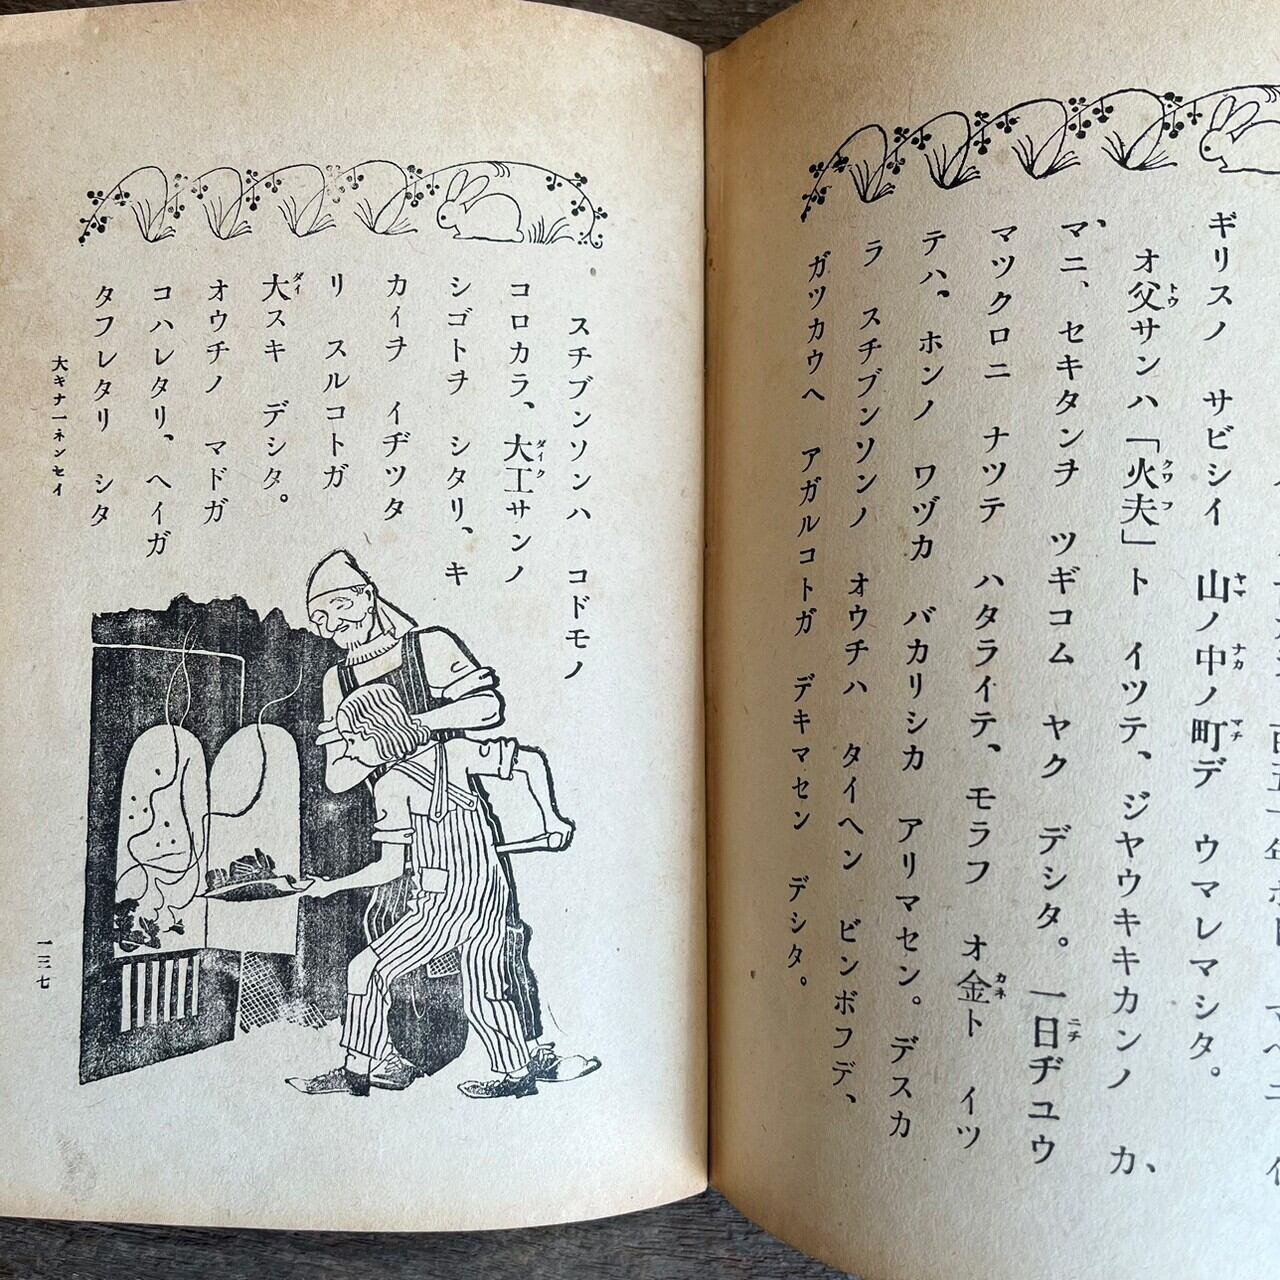 ギリスノ サビシイ 山ノ中ノ町デ ウマレマシタ。
ヤマ ナカ マチ
オ父サンハ「火夫」ト イツテ、ジヤウキキカンノ カ
トウ クワフ
マニ、セキタンヲ ツギコム ヤク デシタ。一日ヂユウ
ニチ
マツクロニ ナツテ ハタライテ、モラフ オ金ト イツ
カネ
テハ、ホンノ ワヅカ バカリシカ アリマセン。デスカ
ラ スチブンソンノ オウチハ タイヘン ビンボフデ、
ガツカウヘ アガルコトガ デキマセン デシタ。
スチブンソンハ コドモノ
コロカラ、大工サンノ
ダイク
シゴトヲ シタリ、キ
カイヲ イヂツタ
リ スルコトガ
大スキ デシタ。
ダイ
オウチノ マドガ
コハレタリ、ヘイガ
タフレタリ シタ
大キナ一ネンセイ
一三七